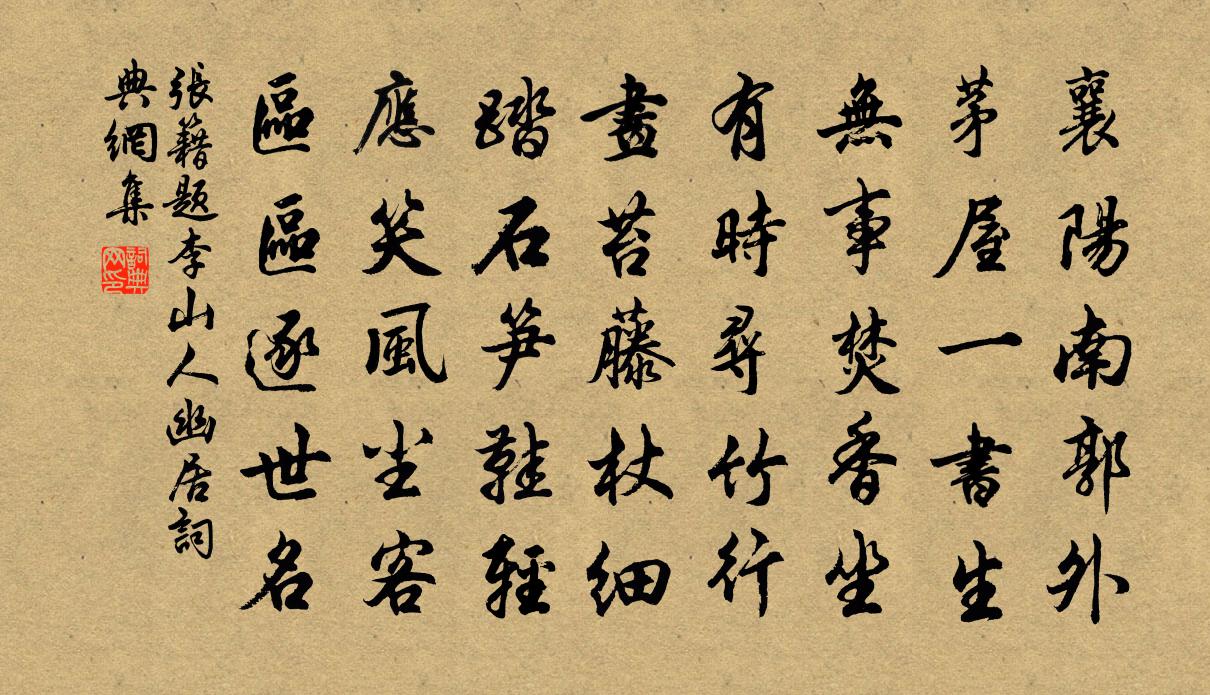 襄陽南郭外
茅屋一書生
無事焚香坐
有時尋竹行
畫苔藤杖細
踏石笋鞋輕
應笑風尘客
區區逐世名
張籍題李山人幽居詞
典網集
詞典
网印